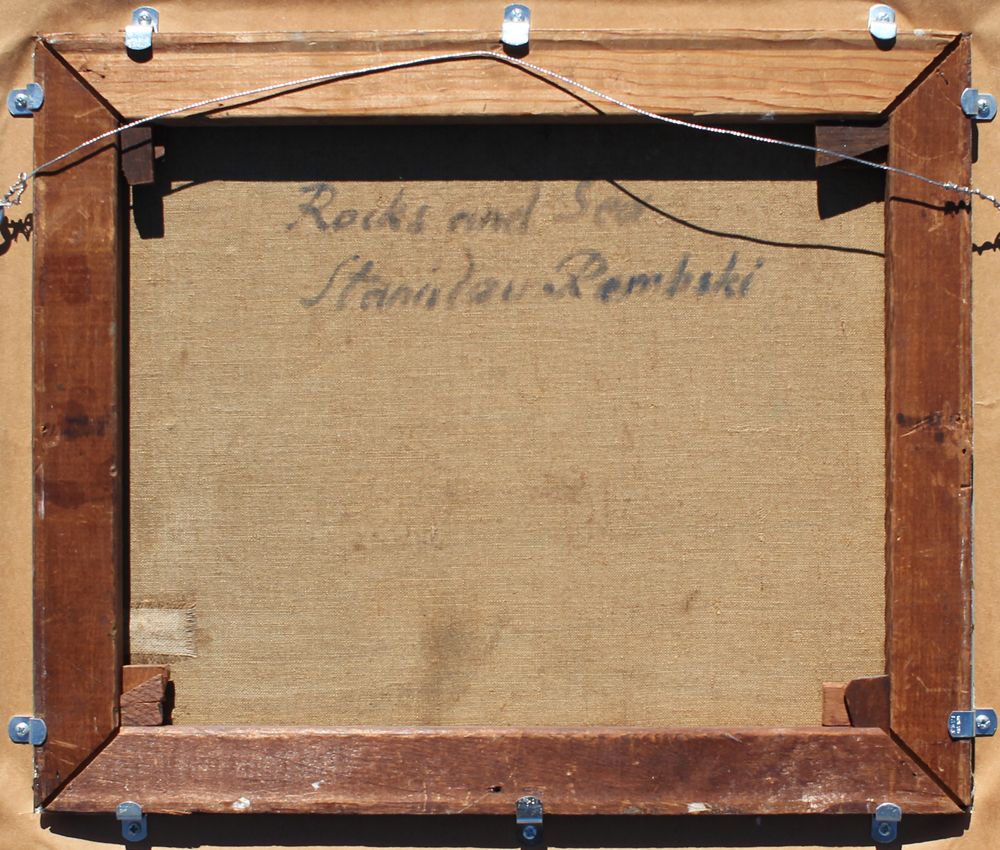 Rocks and Sea
Stanislav Rembski